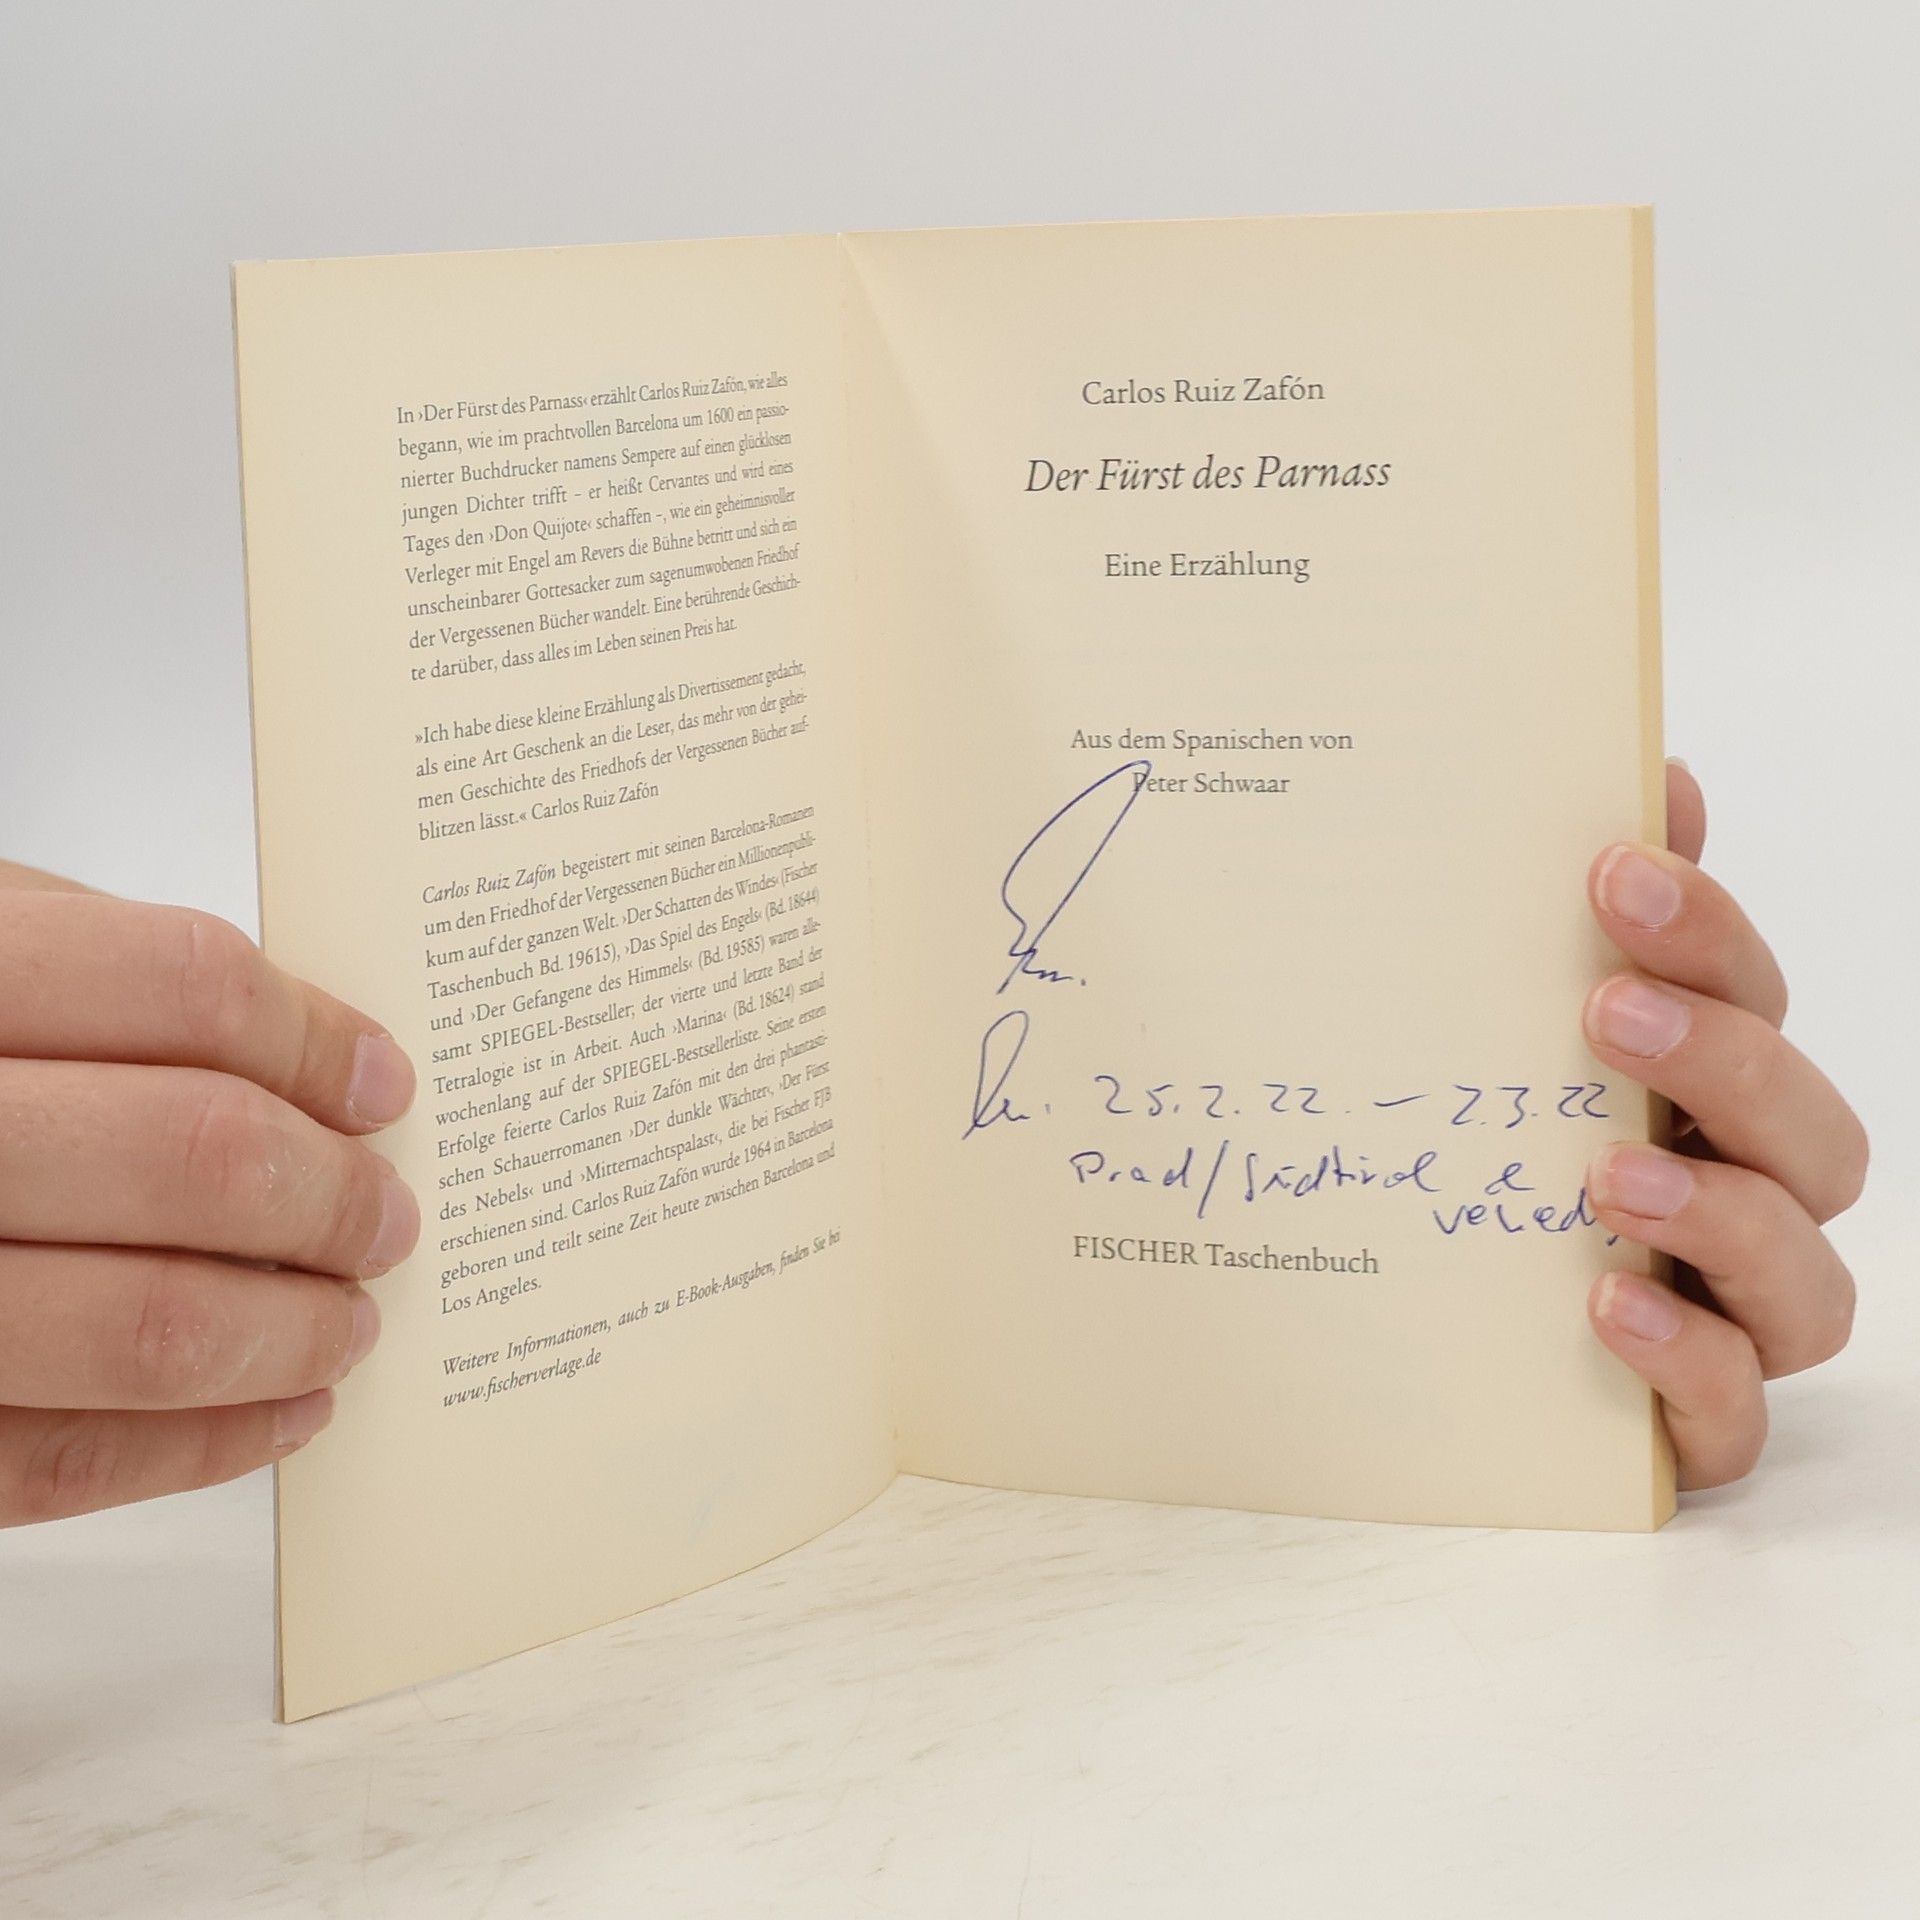 In ›Der Fürst des Parnass‹ erzählt Carlos Ruiz Zafón, wie alles
begann, wie im prachtvollen Barcelona um 1600 ein passio-
nierter Buchdrucker namens Sempere auf einen glücklosen
jungen Dichter trifft – er heißt Cervantes und wird eines
Tages den ›Don Quijote‹ schaffen –, wie ein geheimnisvoller
Verleger mit Engel am Revers die Bühne betritt und sich ein
unscheinbarer Gottesacker zum sagenumwobenen Friedhof
der Vergessenen Bücher wandelt. Eine berührende Geschich-
te darüber, dass alles im Leben seinen Preis hat.
»Ich habe diese kleine Erzählung als Divertissement gedacht,
als eine Art Geschenk an die Leser, das mehr von der gehei-
men Geschichte des Friedhofs der Vergessenen Bücher auf-
blitzen lässt.« Carlos Ruiz Zafón
Carlos Ruiz Zafón begeistert mit seinen Barcelona-Romanen
um den Friedhof der Vergessenen Bücher ein Millionenpubli-
kum auf der ganzen Welt. ›Der Schatten des Windes‹ (Fischer
Taschenbuch Bd. 19615), ›Das Spiel des Engels‹ (Bd. 18644)
und ›Der Gefangene des Himmels‹ (Bd. 19585) waren alle-
samt SPIEGEL-Bestseller; der vierte und letzte Band der
Tetralogie ist in Arbeit. Auch ›Marina‹ (Bd. 18624) stand
wochenlang auf der SPIEGEL-Bestsellerliste. Seine ersten
Erfolge feierte Carlos Ruiz Zafón mit den drei phantasti-
schen Schauerromanen ›Der dunkle Wächter‹, ›Der Fürst
des Nebels‹ und ›Mitternachtspalast‹, die bei Fischer FJB
erschienen sind. Carlos Ruiz Zafón wurde 1964 in Barcelona
geboren und teilt seine Zeit heute zwischen Barcelona und
Los Angeles.
Weitere Informationen, auch zu E-Book-Ausgaben, finden Sie bei
www.fischerverlage.de
Carlos Ruiz Zafón
Der Fürst des Parnass
Eine Erzählung
Aus dem Spanischen von
Peter Schwaar
25.2.22. – 2.3.22
Prad/Südtirol &
FISCHER Taschenbuch